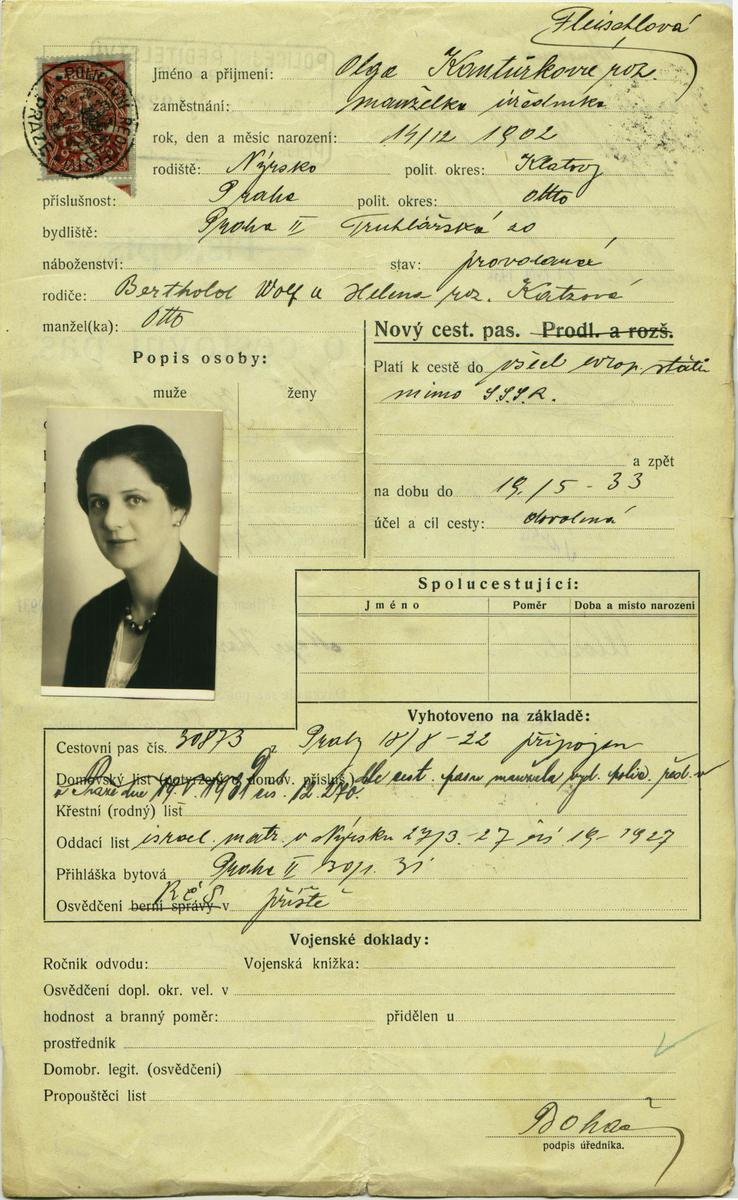 Fleischlová
Jméno a příjmení: Olga Kantůrkové roz.
zaměstnání: manželka úředníka
rok, den a měsíc narození: 14/12 1902
rodiště: Nýrsko polit. okres: Klatovy
příslušnost: Praha polit. okres: otto
bydliště: Praha II Truhlářská 20
náboženství: stav: provdaná
rodiče: Berthold Wolf a Helena roz. Katzová
manžel(ka): Otto
Nový cest. pas. Prodl. a rozš.
Popis osoby:
Platí k cestě do všech evrop. států
mimo S.S.S.R.
muže ženy
a zpět
na dobu do 19/5 - 33
účel a cíl cesty: dovolená
Spolucestující:
Jméno Poměr Doba a místo narození
Vyhotoveno na základě:
Cestovní pas čís. 30873 z Prahy 18/8-22 připojen
Domovský list (potvrzení o domov. přísluš.) dle cest. pasu manžela, vyd. polic. řed. v
v Praze dne 19.V.1931 čís. 12.270.
Křestní (rodný) list
Oddací list israel. matr. v Nýrsku 27/3.-27 čís 19-1927
Přihláška bytová Praha II 30/1. 31
Osvědčení berní správy v příště
Vojenské doklady:
Ročník odvodu: Vojenská knížka:
Osvědčení dopl. okr. vel. v
hodnost a branný poměr: přidělen u
prostředník
Domobr. legit. (osvědčení)
Propouštěcí list
Bohač
podpis úředníka.